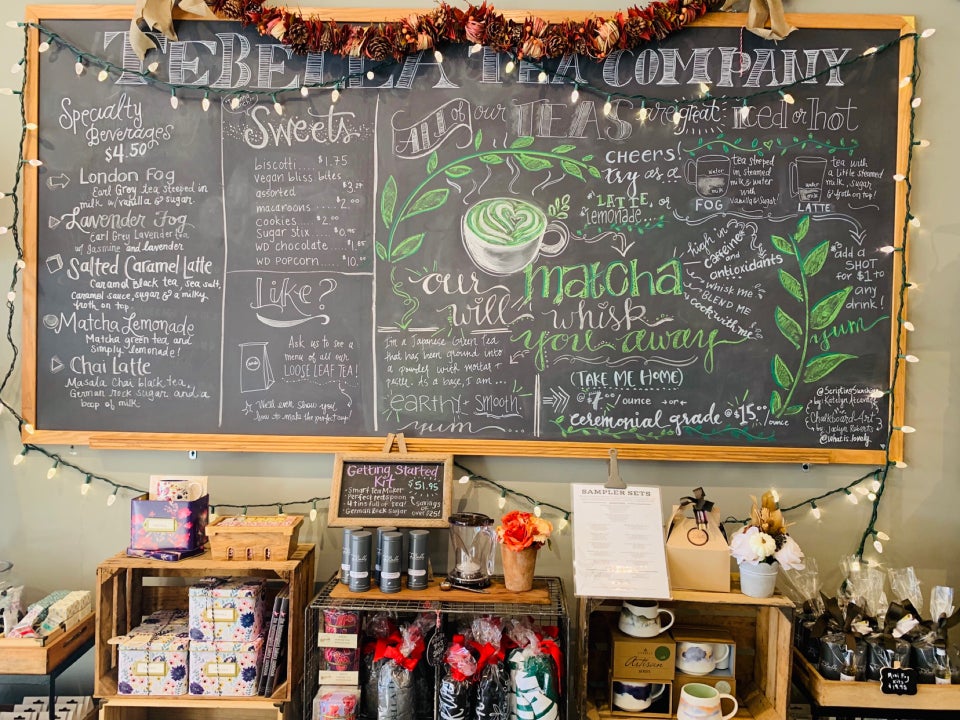 TEBELLA TEA COMPANY
Specialty
Beverages
$4.50
London Fog
Earl Grey tea steeped in
milk w/vanilla & sugar
Lavender Fog
Earl Grey Lavender tea
w/ Jasmine and lavender
Salted Caramel Latte
Caramel Black tea, sea salt,
Caramel sauce, sugar & a milky
froth on top
Matcha Lemonade
Matcha green tea and
Simply Lemonade!
Chai Latte
Masala Chai black tea,
German rock sugar and a
bit of milk
Sweets
biscotti .... $1.75
vegan bliss bites
assorted
macaroons .... $2.00
cookies ... $2.00
Sugar stix .... $0.95
WD chocolate
WD popcorn .... $10.00
Like?
Ask us to see a
menu of all our
LOOSE LEAF TEA!
We'll even show you
how to make the perfect cup!
ALL of our TEAS are great Iced or Hot
CHEERS!
try as a
FOG
LATTE, or
Lemonade...
tea steeped
in steamed
milk & water
with
vanilla & sugar
FOG
tea with
a little steamed
milk, sugar
& froth on top!
LATTE
our matcha
will whisk
you away
high in
caffeine
and
antioxidants
WHISK ME
BLEND ME
COOK with ME
add a
SHOT
for $1 to
any
drink!
yum
I'm a Japanese Green Tea
that has been ground into
a powder with mortar +
pestle. As a base, I am...
EARTHY + SMOOTH
yum
(TAKE ME HOME)
/ounce or
ceremonial grade @ $15.00/ounce
@ScriptingSunshine
Chalkboard Art
by Jaclyn Roberts
@what.is.lovely
Getting Started
Kit
$51.95
Smart Tea Maker
Perfect teaspoon
4 tins full of tea!
German Rock Sugar
savings
of
over $25!
SAMPLER SETS
Artisan
Mini Gift
Kits